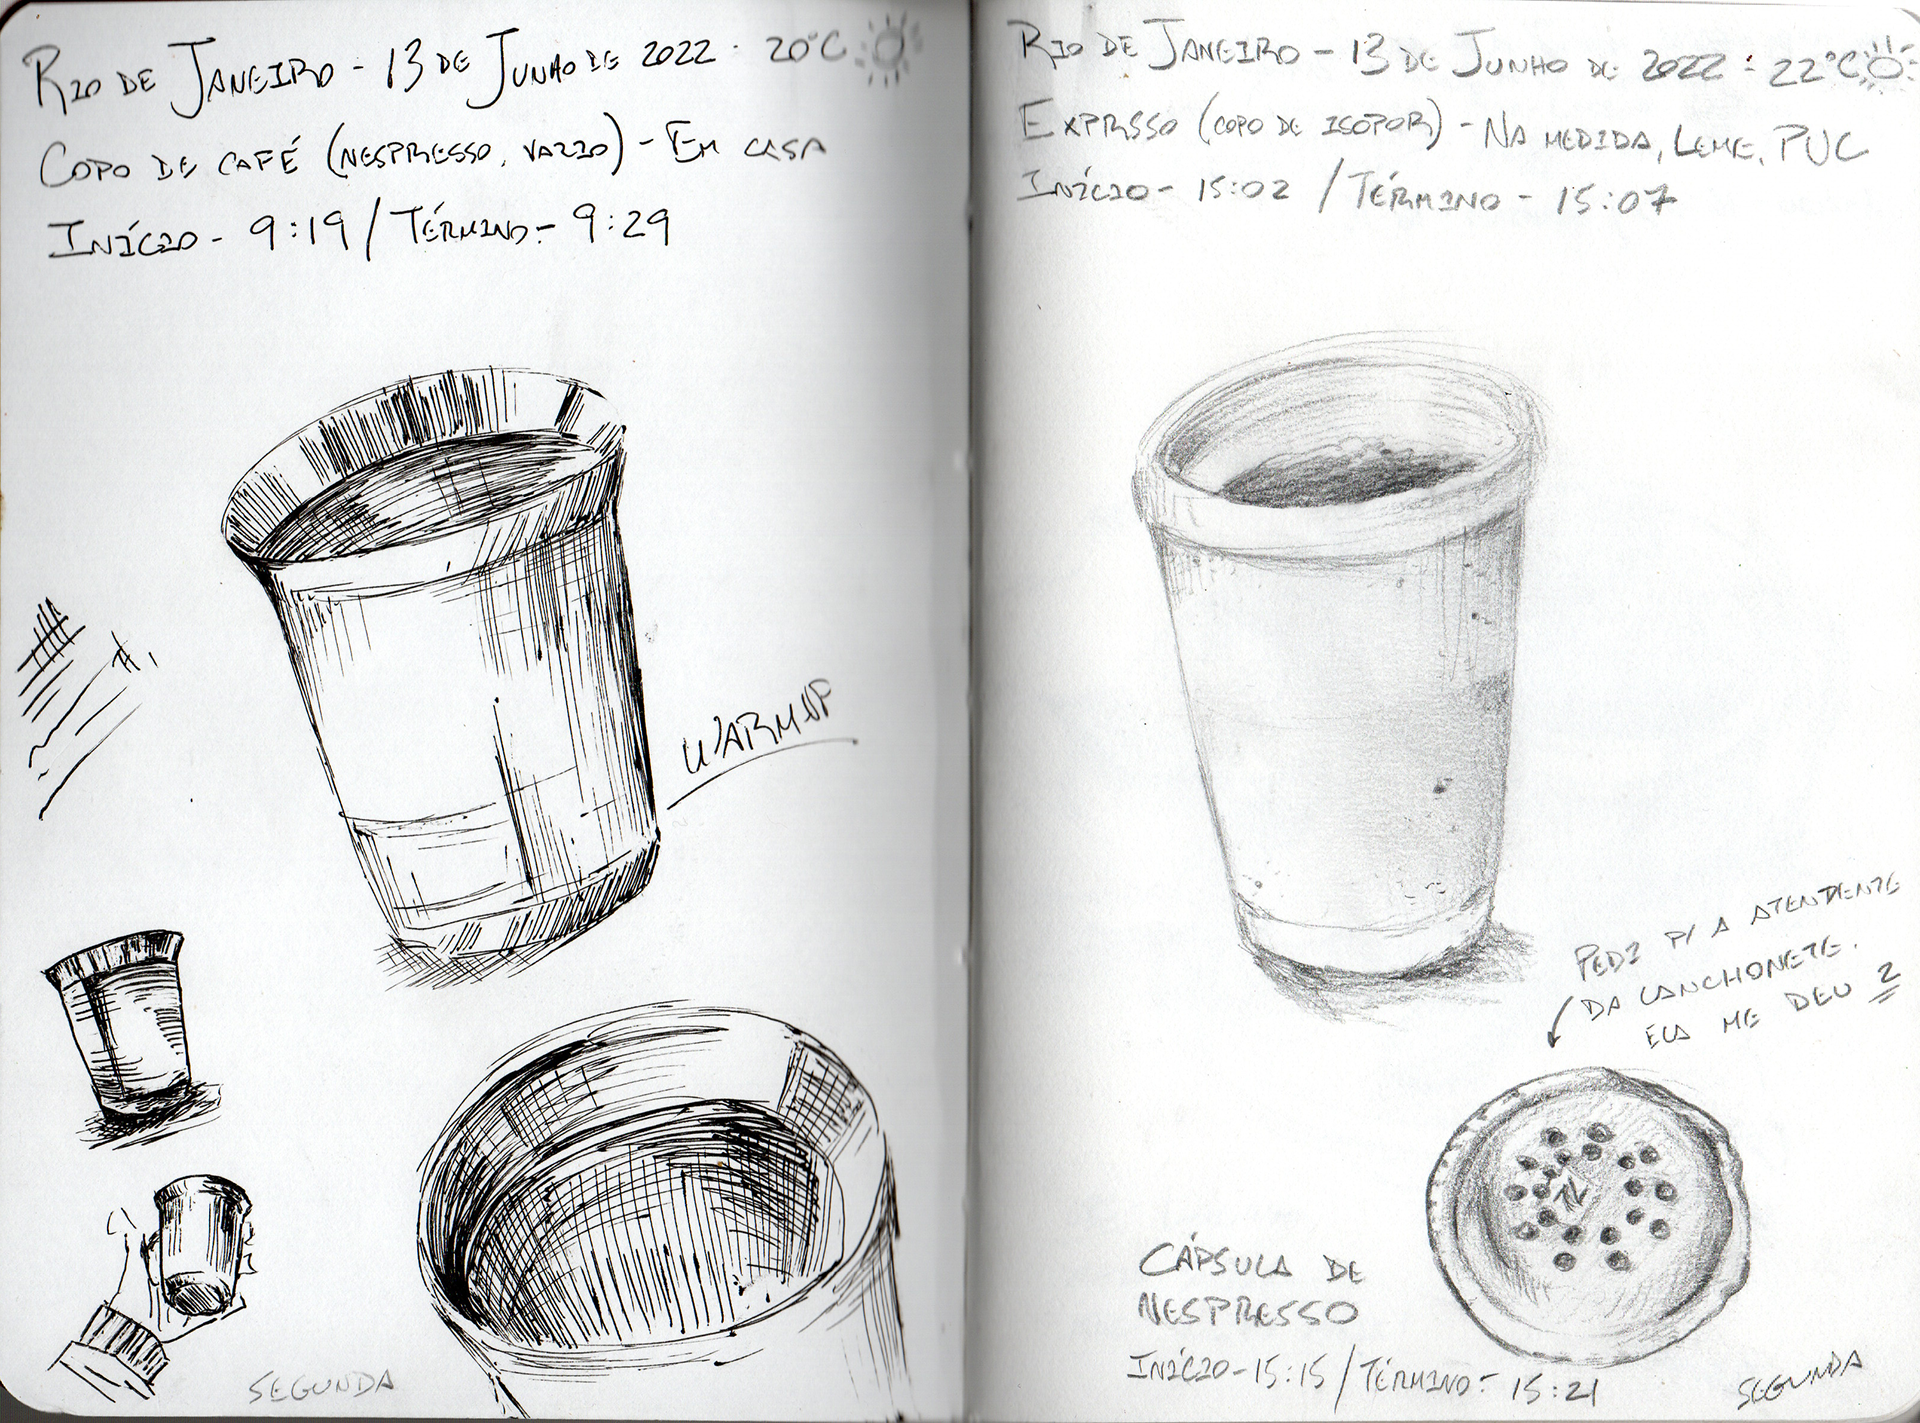 RIO DE JANEIRO - 13 DE JUNHO DE 2022 · 20°C
COPO DE CAFÉ (NESPRESSO, VAZIO) - EM CASA
INÍCIO - 9:19 / TÉRMINO - 9:29
WARMUP
SEGUNDA
RIO DE JANEIRO - 13 DE JUNHO DE 2022 · 22°C
EXPRSSO (COPO DE ISOPOR) - NA MEDIDA, LEME, PUC
INÍCIO - 15:02 / TÉRMINO - 15:07
PEDI P/ A ATENDENTE
DA LANCHONETE.
ELA ME DEU 2
CÁPSULA DE
NESPRESSO
INÍCIO - 15:15 / TÉRMINO - 15:21
SEGUNDA